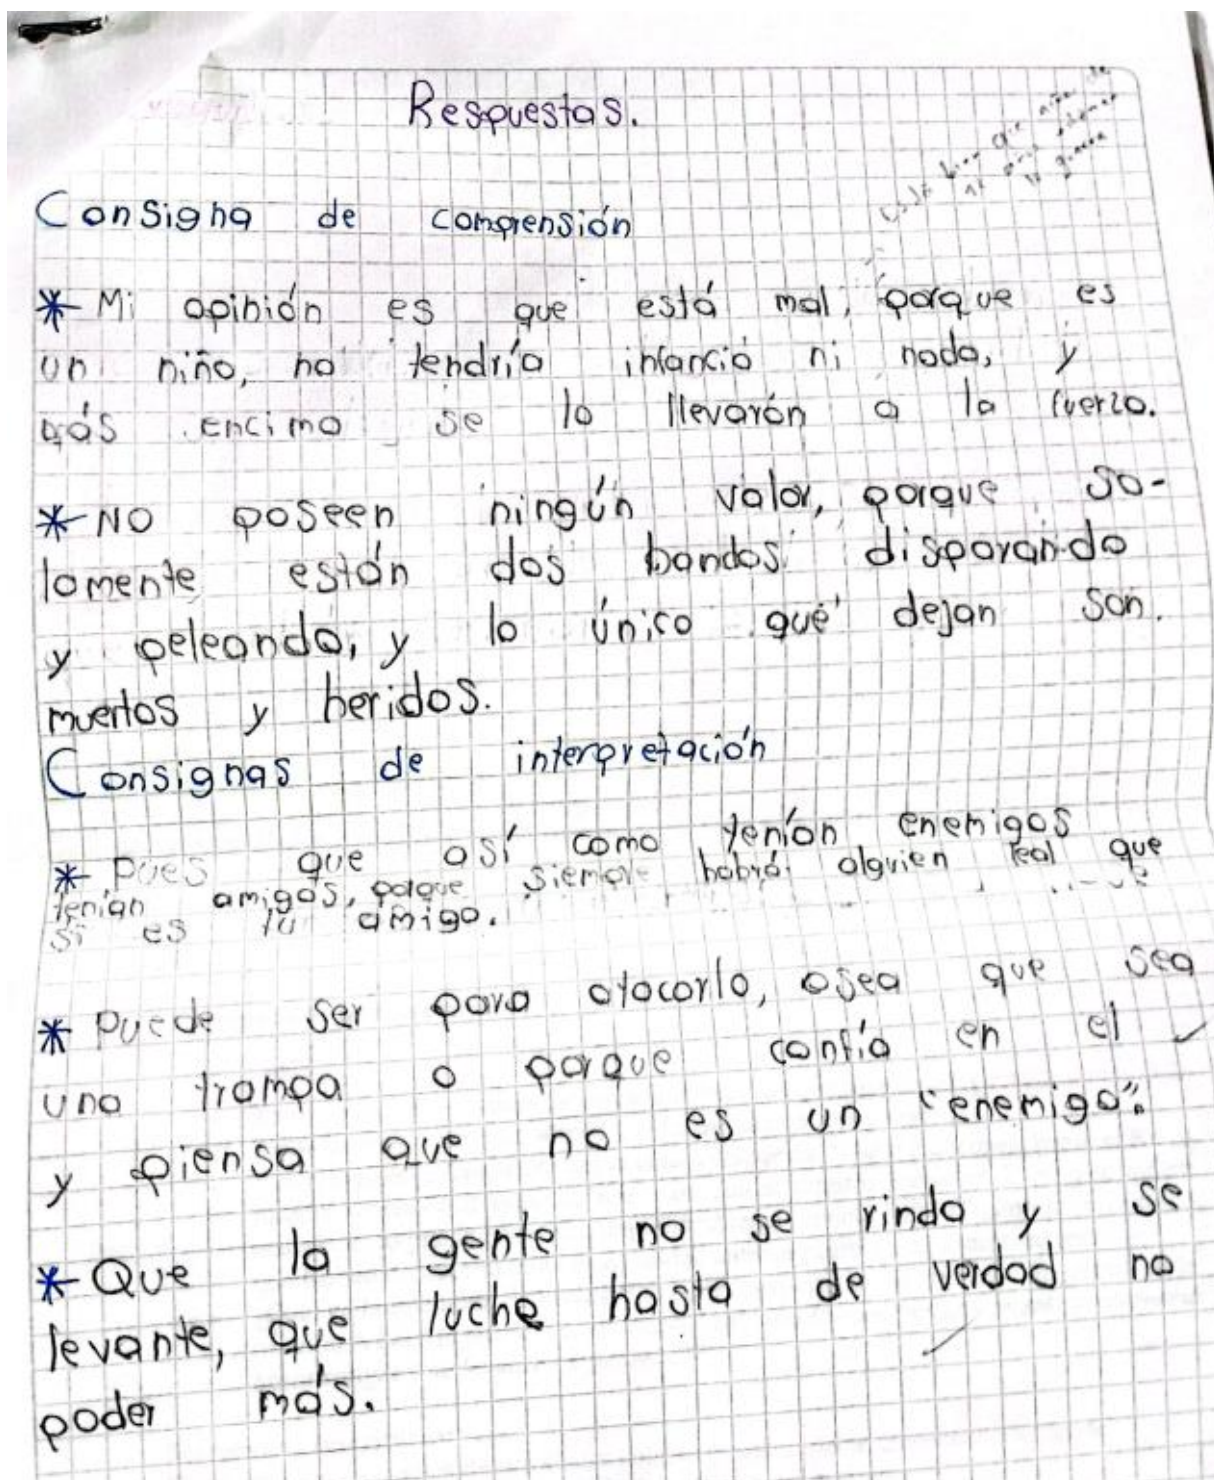 Respuestas.
Consigna de comprensión
* Mi opinión es que está mal, porque es
un niño, no tendría infancia ni nada, y
más encima se lo llevarón a la fuerza.
* No poseen ningún valor, porque so-
lamente están dos bandos disparando
y peleando, y lo único que dejan son
muertos y heridos.
Consignas de interpretación
* Pues que así como tenían enemigos
tenían amigos, porque siempre habrá alguien leal que
si es tu amigo.
* Puede ser para atacarlo, osea que sea
una trampa o porque confía en el
y piensa que no es un "enemigo".
* Que la gente no se rinda y se
levante, que luche hasta de verdad no
poder más.